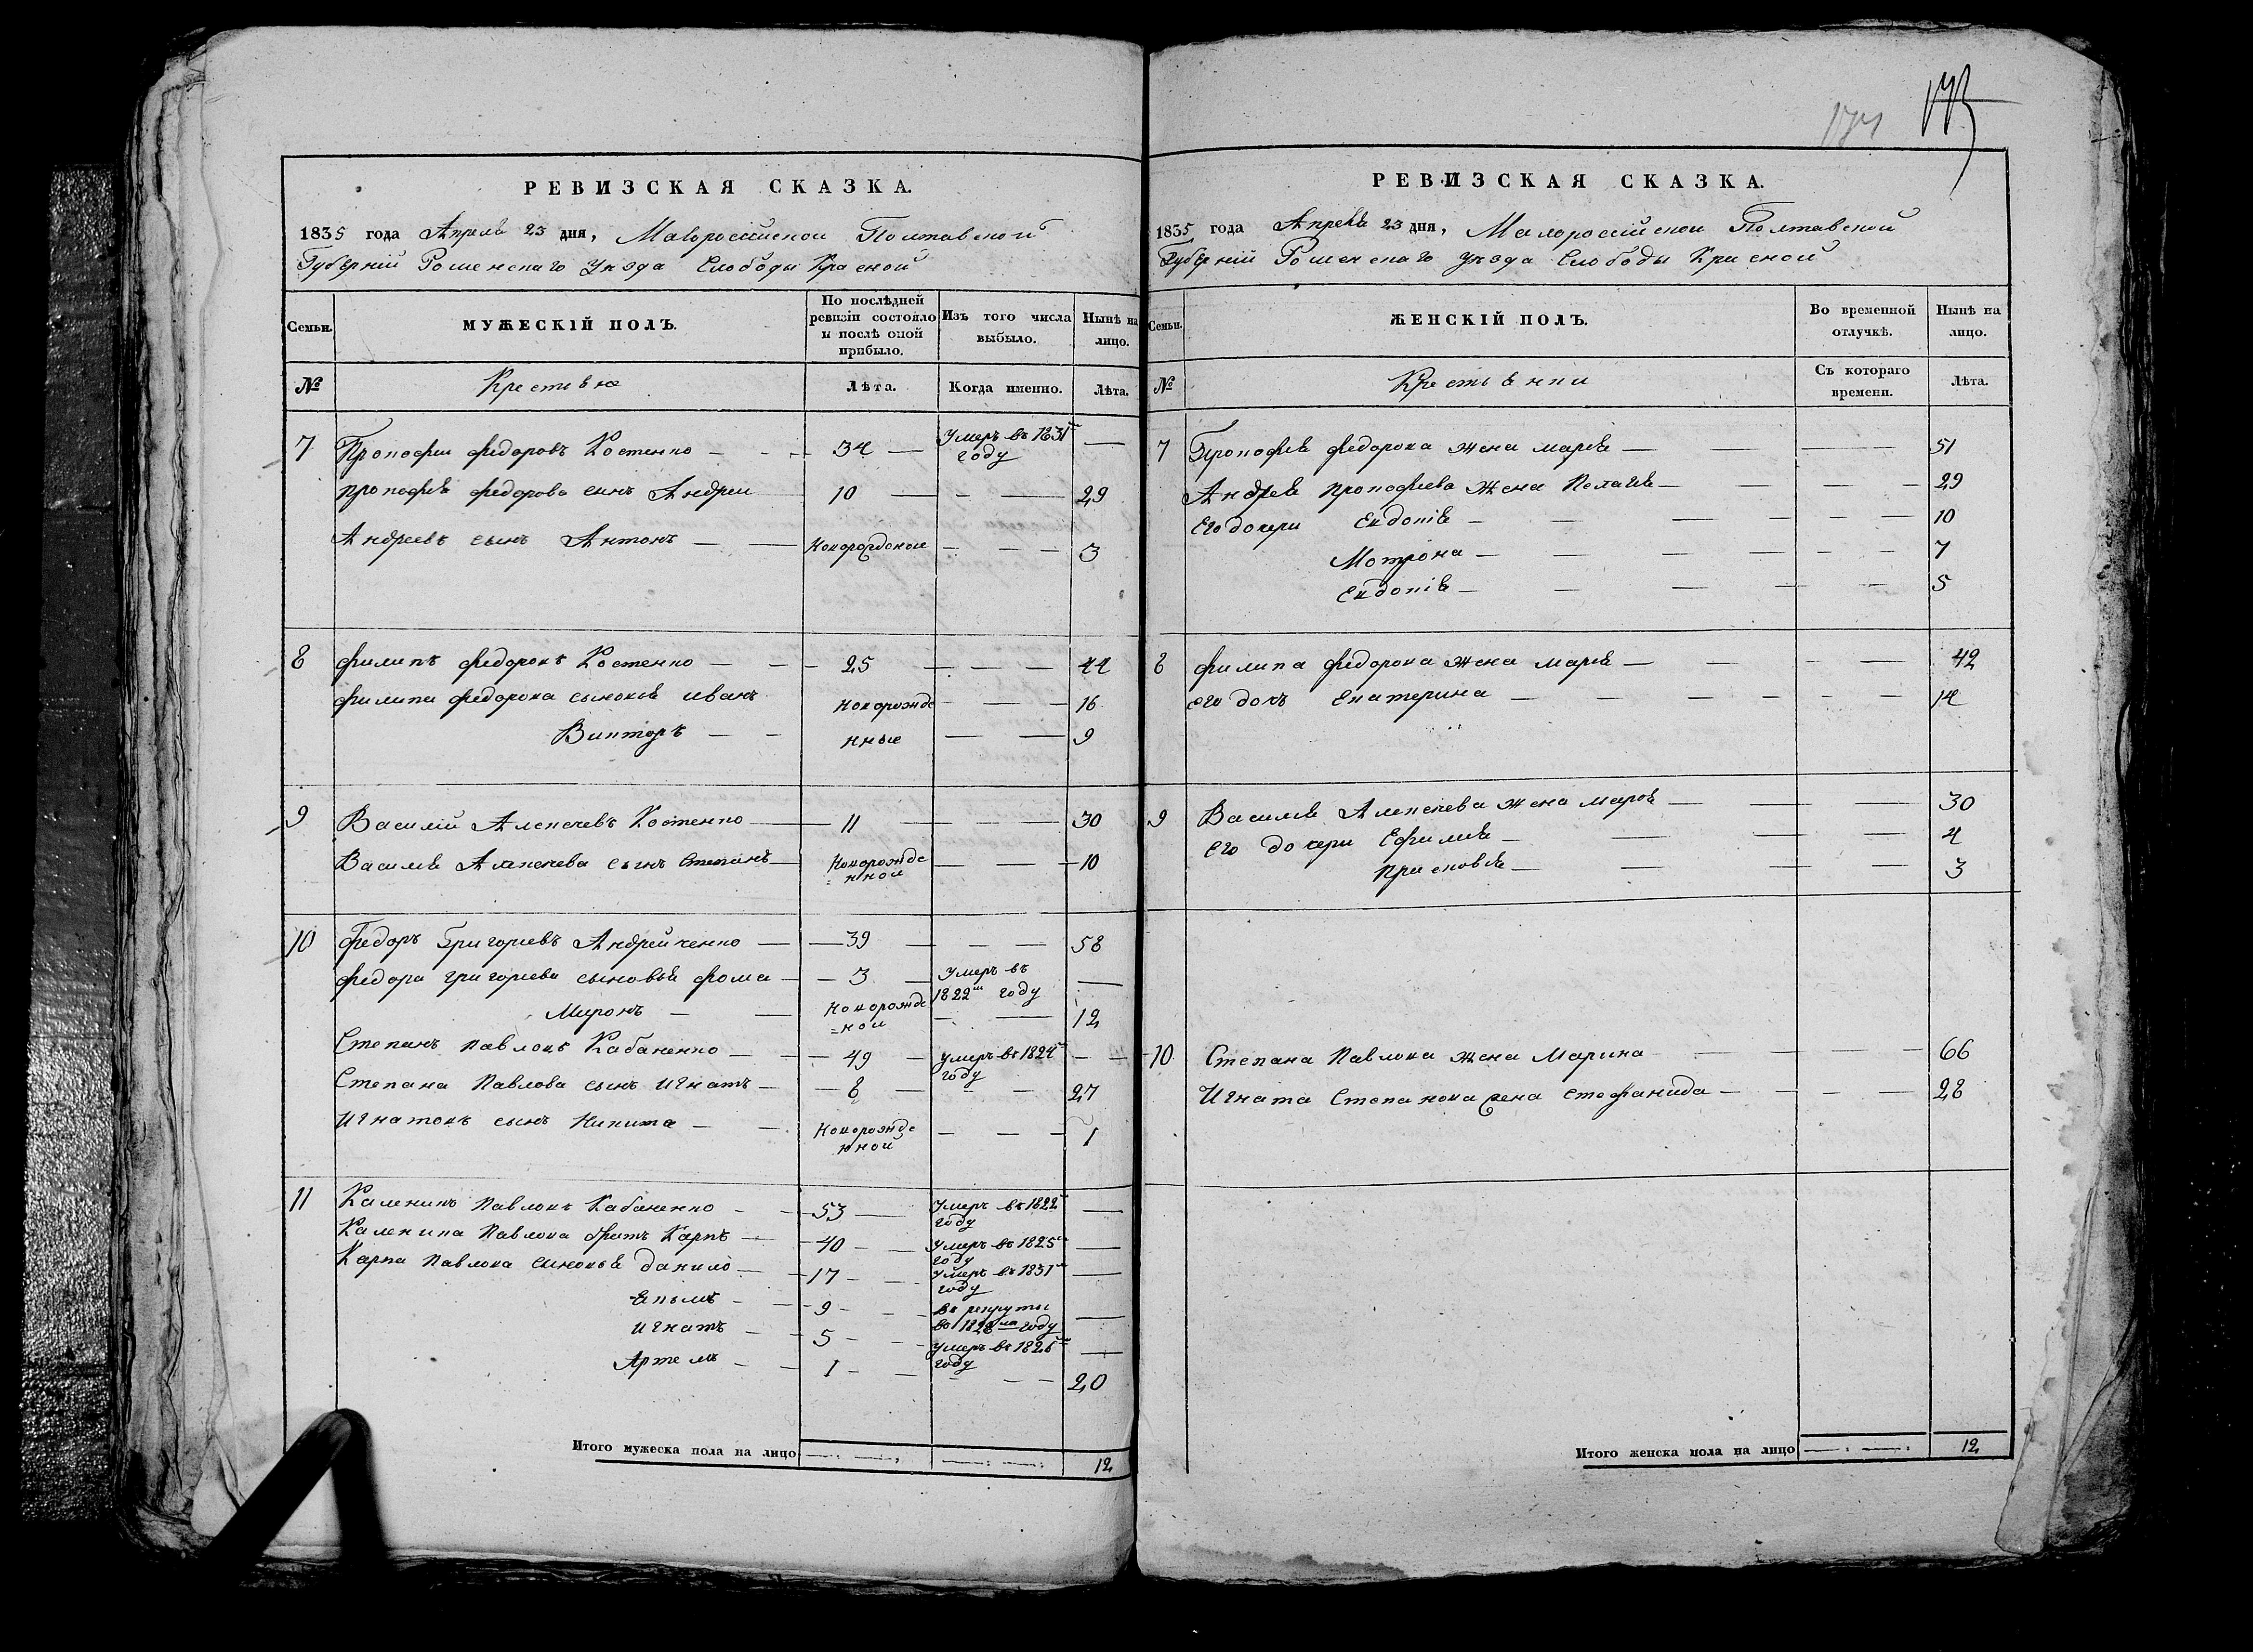 173
171
РЕВИЗСКАЯ СКАЗКА.
1835 года Апреля 23 дня, Малороссійской Полтавской
Губерніи Роменскаго Уѣзда Слободы Красной
Семьи.
МУЖЕСКІЙ ПОЛЪ.
По послѣдней ревизіи состояло и послѣ оной прибыло.
Изъ того числа выбыло.
Нынѣ на лицо.
№
Крестьяне
Лѣта.
Когда именно.
Лѣта.
7 Прокофии федоровъ Костенко 34 Умеръ въ 1831м году
прокофия федорова синъ Андреи 10 29
Андреевъ сынъ Антонъ Новорожденои 3
8 филипъ федоровъ Костенко 25 44
филипа федорова сыновья иванъ новорожде 16
Викторъ нные 9
9 Василій Алексеевъ Костенко 11 30
Василия Алексеева сынъ Степанъ Новорожде=нной 10
10 федоръ Григориевъ Андрейченко 39 58
федора григориева сыновья фома 3 Умеръ въ 1822м году
Миронъ Новорожде=нои 12
Степанъ Павловъ Кабаненко 49 умеръ въ 1824м году
Степана Павлова сынъ Игнатъ 8 27
Игнатовъ сынъ Никита Новорожденной 1
11 Каленикъ Павловъ Кабаненко 53 Умеръ въ 1822м году
Каленика Павлова братъ Карпъ 40 Умеръ въ 1825м году
Карпа Павлова сыновья данило 17 Умеръ въ 1831м году
Якымъ 9 въ рекруты въ 1828м году
Игнатъ 5 Умеръ въ 1826м году
Артемъ 1 20
Итого мужеска пола на лицо 12
РЕВИЗСКАЯ СКАЗКА.
1835 года Апреля 23 дня, Малороссійской Полтавской
Губерніи Роменскаго Уѣзда Слободы Красной
Семьи.
ЖЕНСКІЙ ПОЛЪ.
Во временной отлучкѣ.
Нынѣ на лицо.
№
Крестьянки
Съ котораго времени.
Лѣта.
7 Прокофия федорова жена мария 51
Андрея прокофиева жена Пелагия 29
Его дочери Евдокія 10
Мотрона 7
Евдокія 5
8 филипа федорова жена мария 42
его дочъ Екатерина 14
9 Василия Алексеева жена марфа 30
Его дочери Ефимия 4
Присковия 3
10 Степана Павлова жена Марина 66
Игната Степанова жена Стефанида 28
Итого женска пола на лицо 12